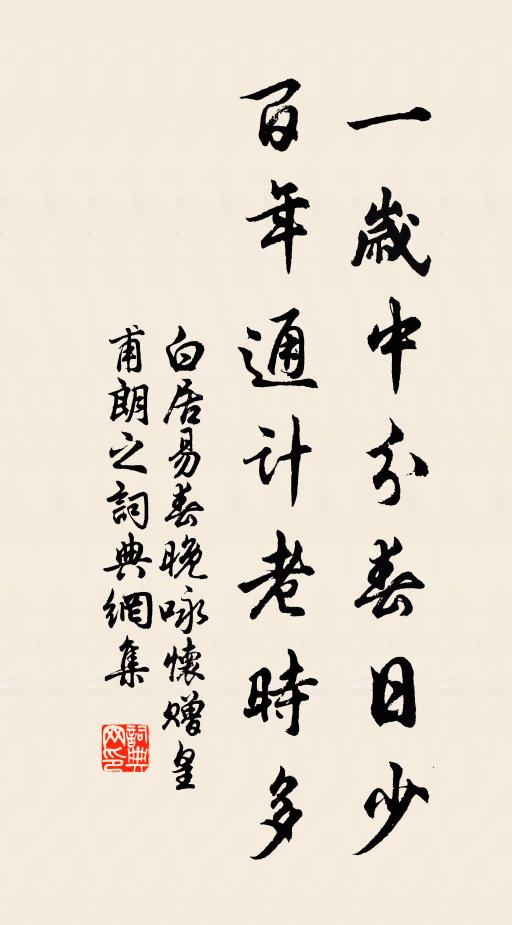 一歲中分春日少
百年通計老時多
白居易春晚咏懷贈皇
甫朗之詞典網集
詞典
网印